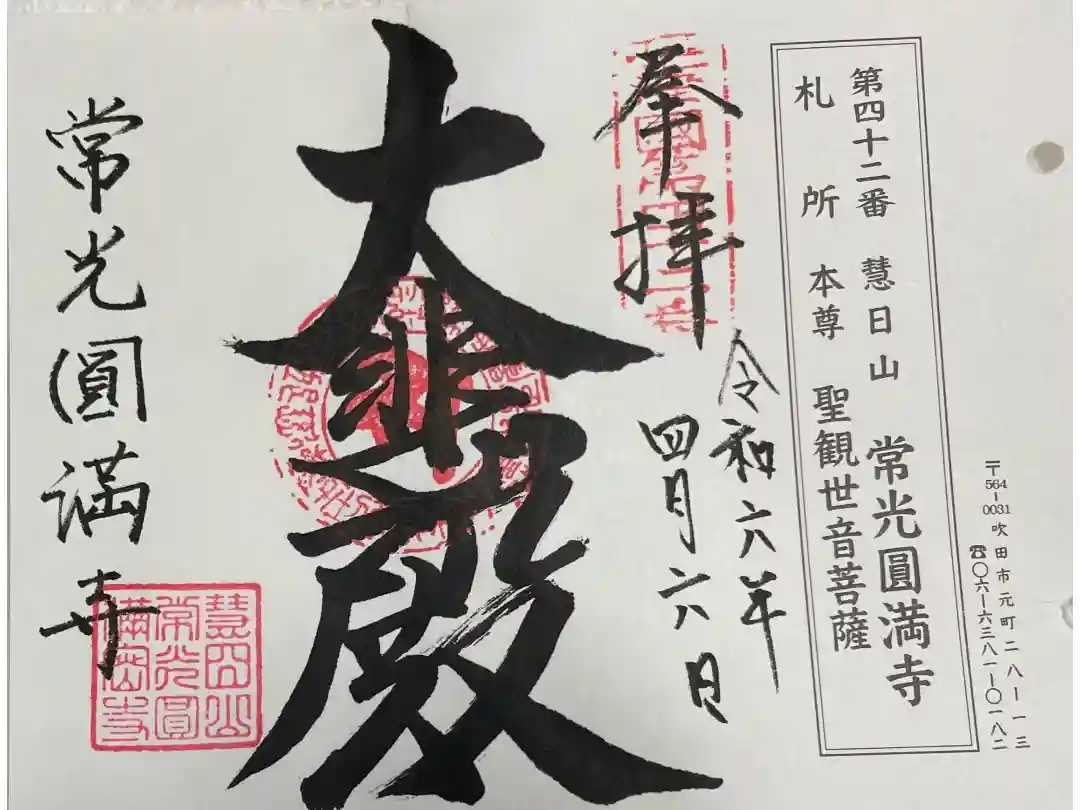 〒564-0031 吹田市元町二八ー一三
☎〇六ー六三八一ー〇一八二
第四十二番 慧日山 常光圓満寺
札所 本尊 聖観世音菩薩
奉拝
令和六年
四月六日
大悲殿
常光圓満寺
慧日山
常光圓
滿密寺